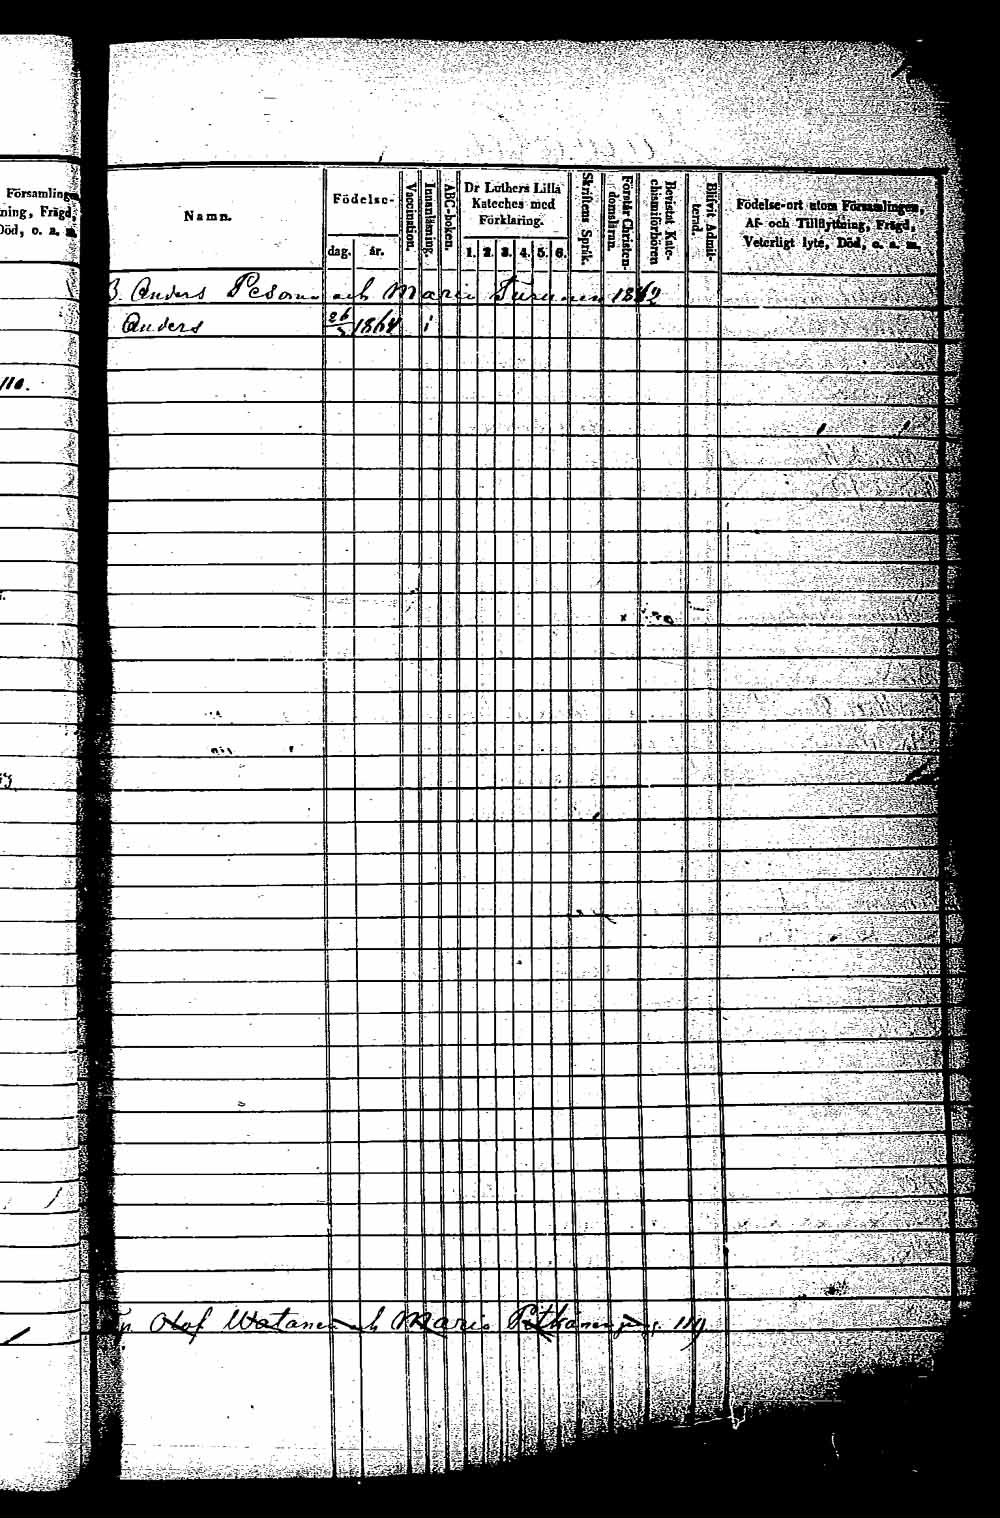 Församlingen
ning, Frägd,
Död, o. s. m.
110.
Namn.
Födelse-
dag. år.
Vaccination.
Innanläsning.
ABC-boken.
Dr Luthers Lilla
Kateches med
Förklaring.
1. 2. 3. 4. 5. 6.
Skriftens Språk.
Förstår Christen-
domsläran.
Bevistat Kate-
chismiförhören
Blifvit Admit-
terad.
Födelse-ort utom Församlingen,
Af- och Tillflyttning, Frägd,
Veterligt lyte, Död, o. a. m.
B. Anders Pesonen och Maria Turunen 1862
Anders 26 1864 i
Olof Watanen och Maria 119